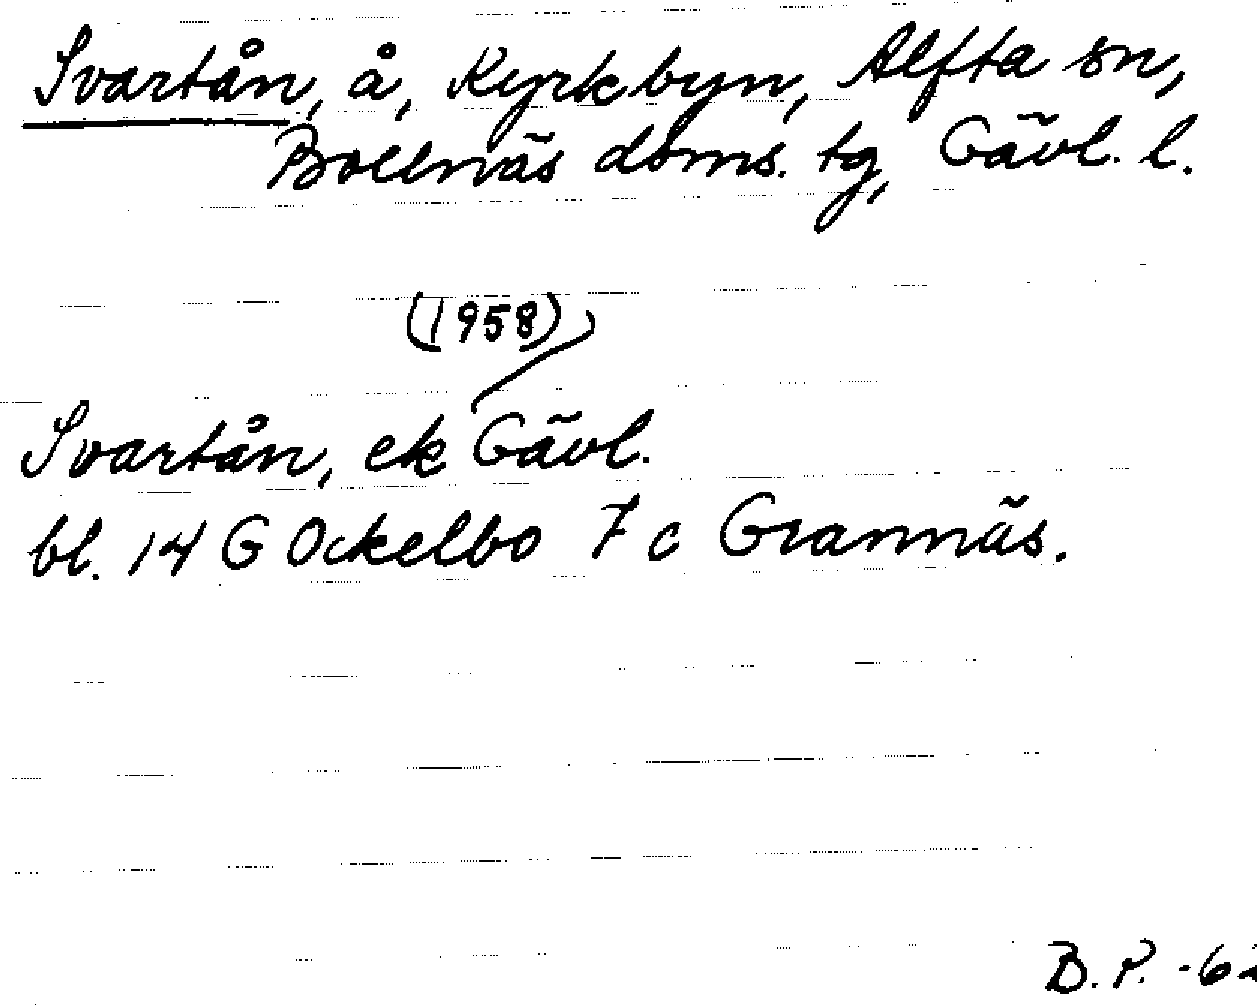 Svartån, å, Kyrkbyn, Alfta sn,
Bollnäs doms. tg, Gävl. l.
(1958)
Svartån, ek Gävl.
bl. 14 G Ockelbo 7 c Grannäs.
B. P. -62